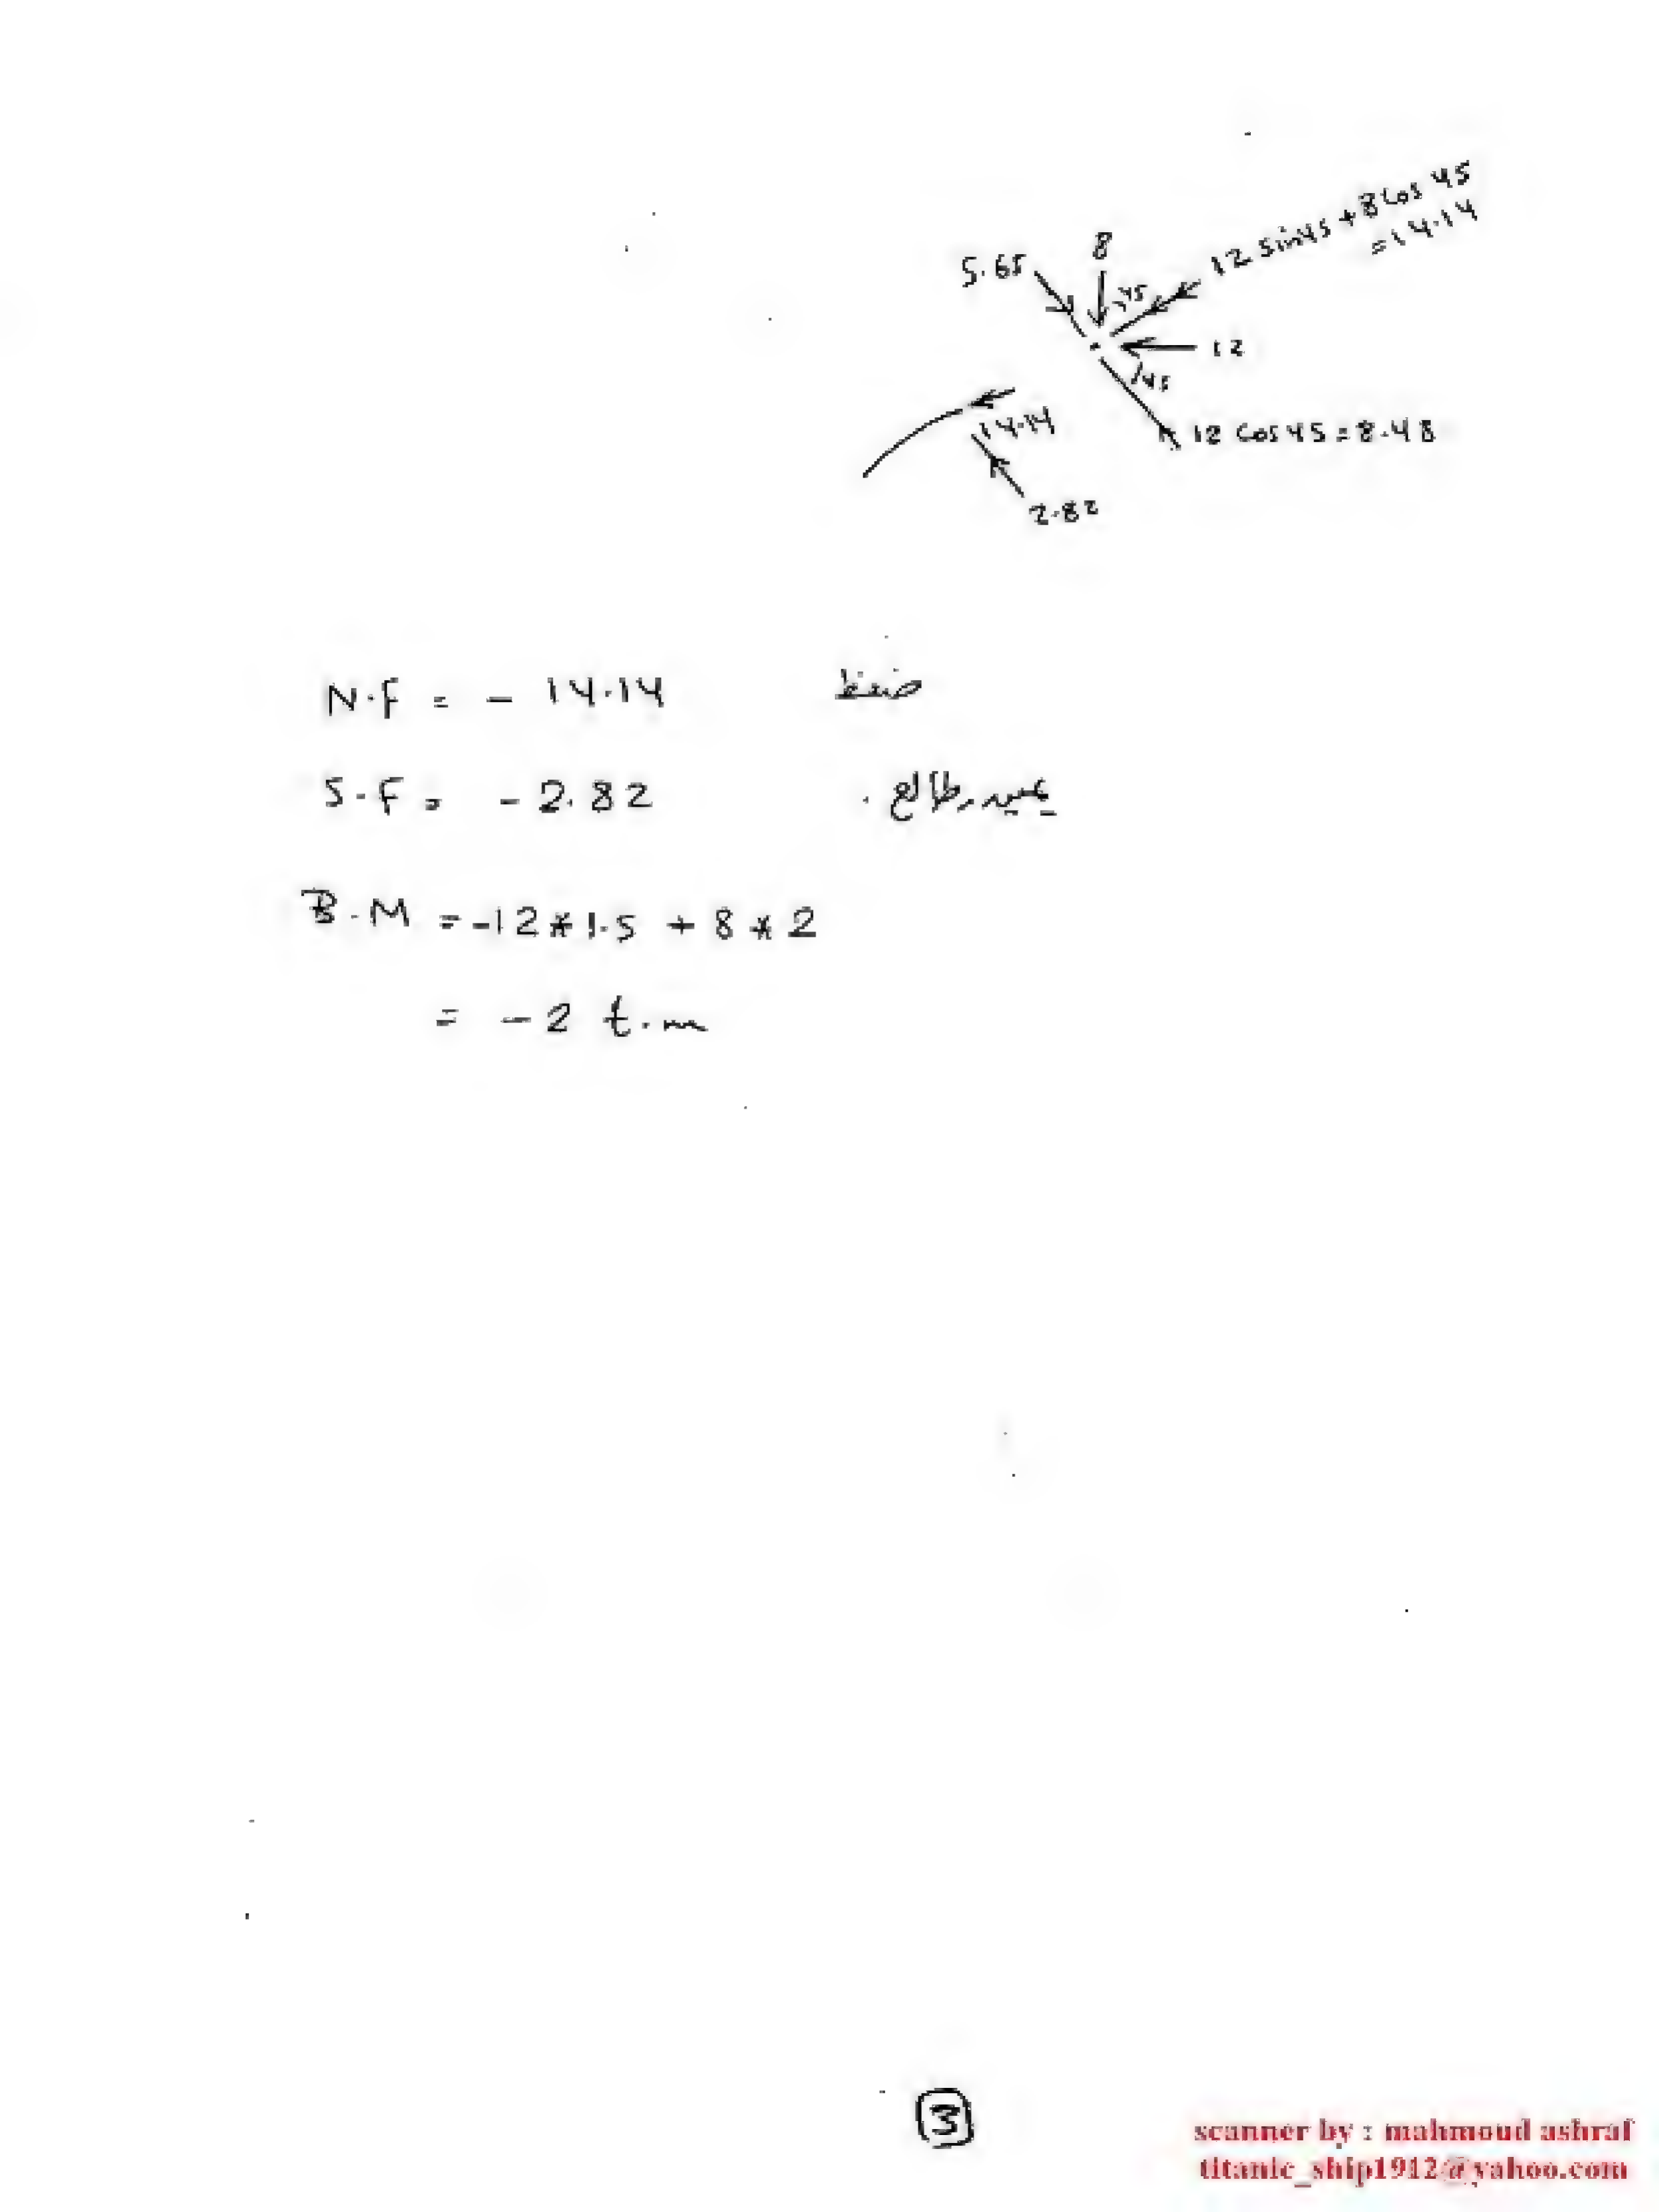 12 sin45 + 8 cos 45
= 14.14
8
5.65
45
12
45
14.14
12 cos 45 = 8.48
2.82
N.F = - 14.14 ضغط
S.F = - 2.82 يمين طالع .
B.M = -12 * 1.5 + 8 * 2
= - 2 t.m
3
scanner by : mahmoud ashraf
titanic_ship1912@yahoo.com